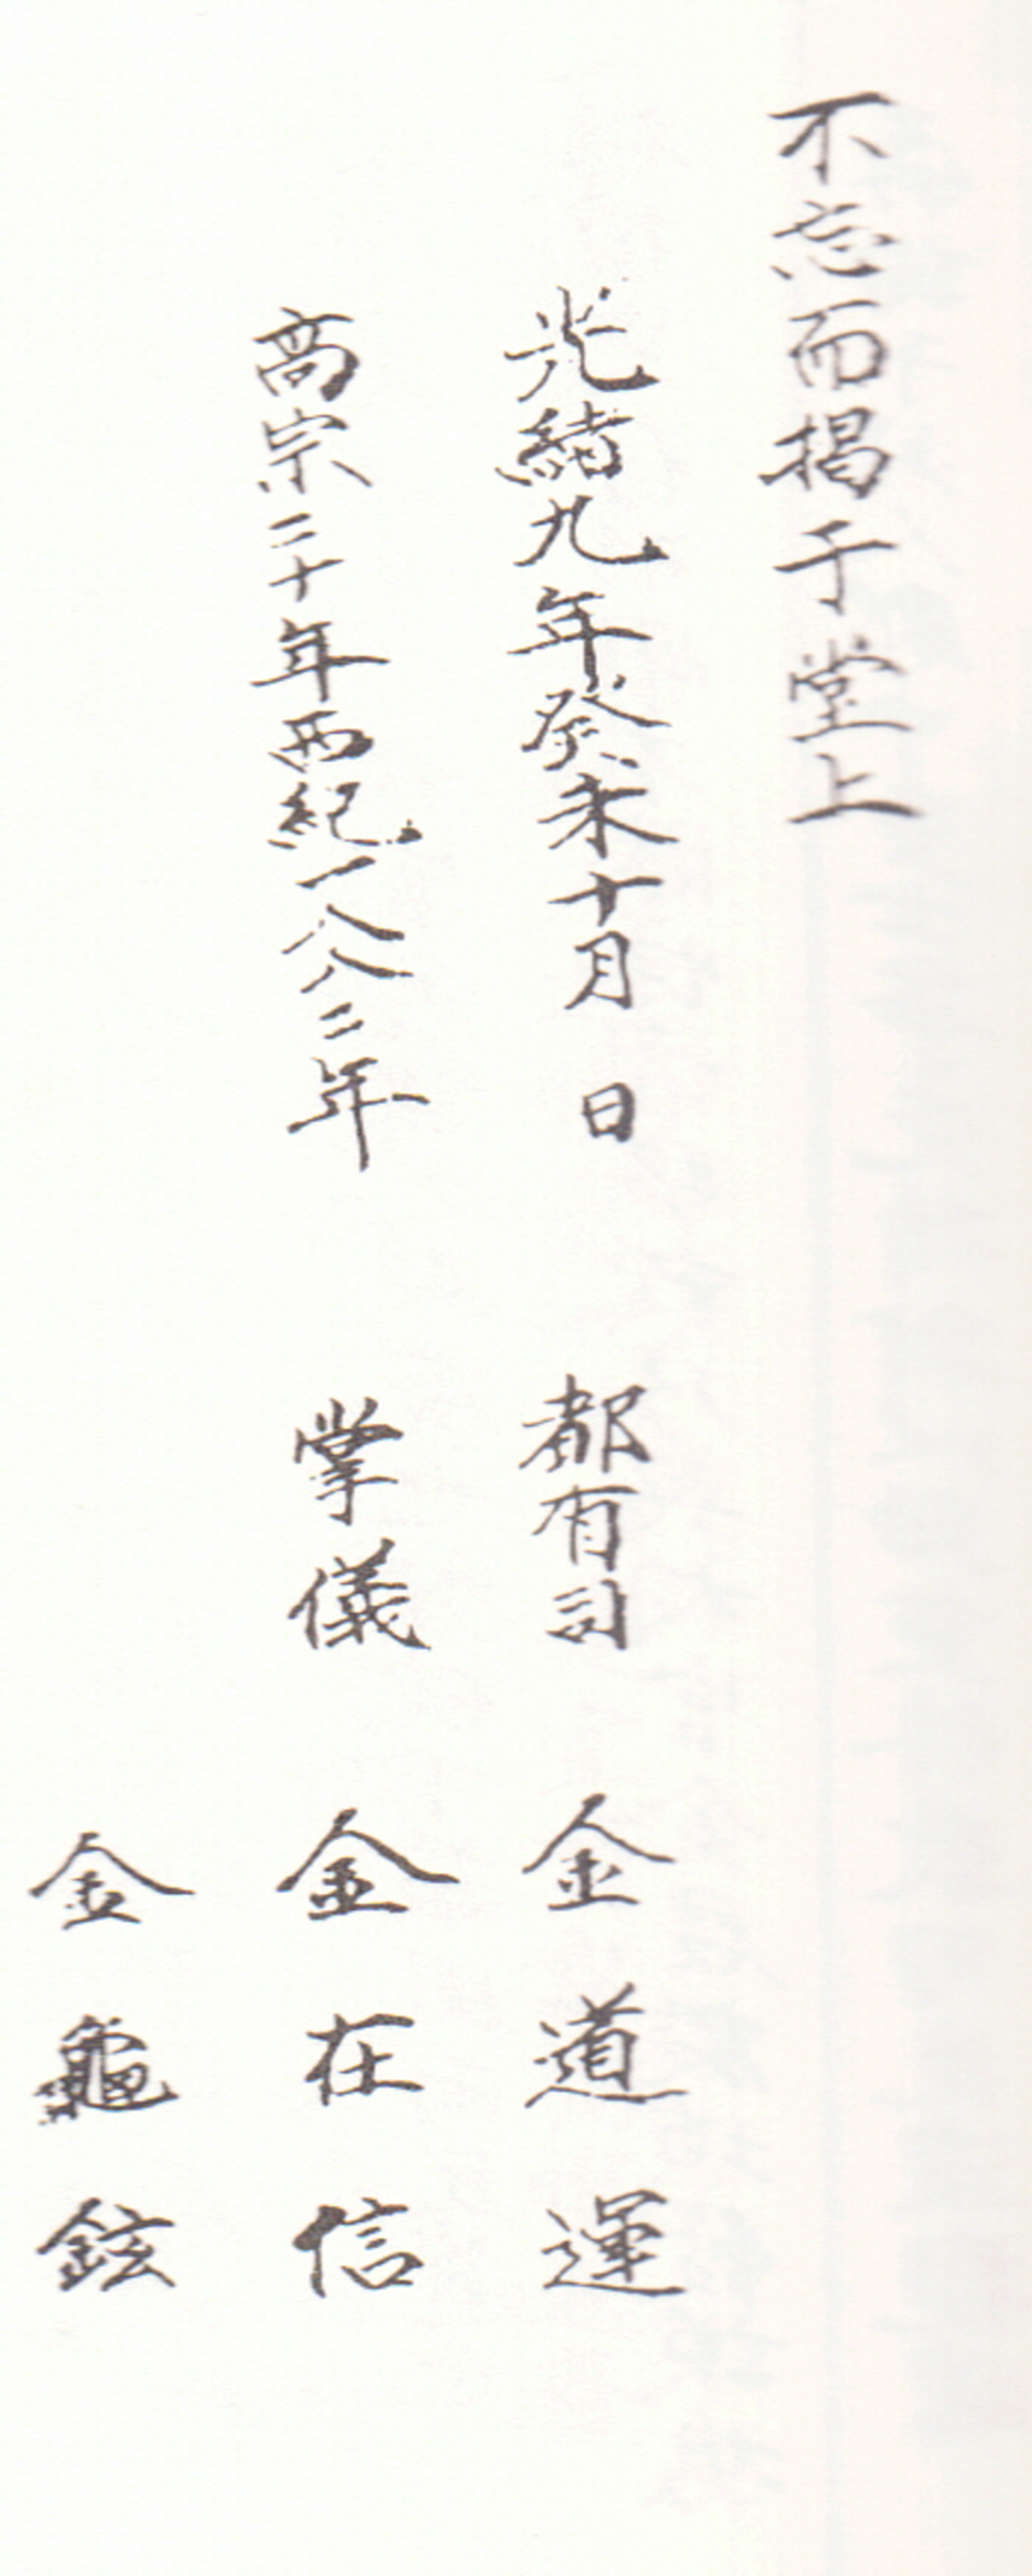 不忘而揭于堂上
光緒九年癸未十月 日 都有司 金道運
高宗二十年西紀一八八二年 掌儀 金在信
金龜鉉